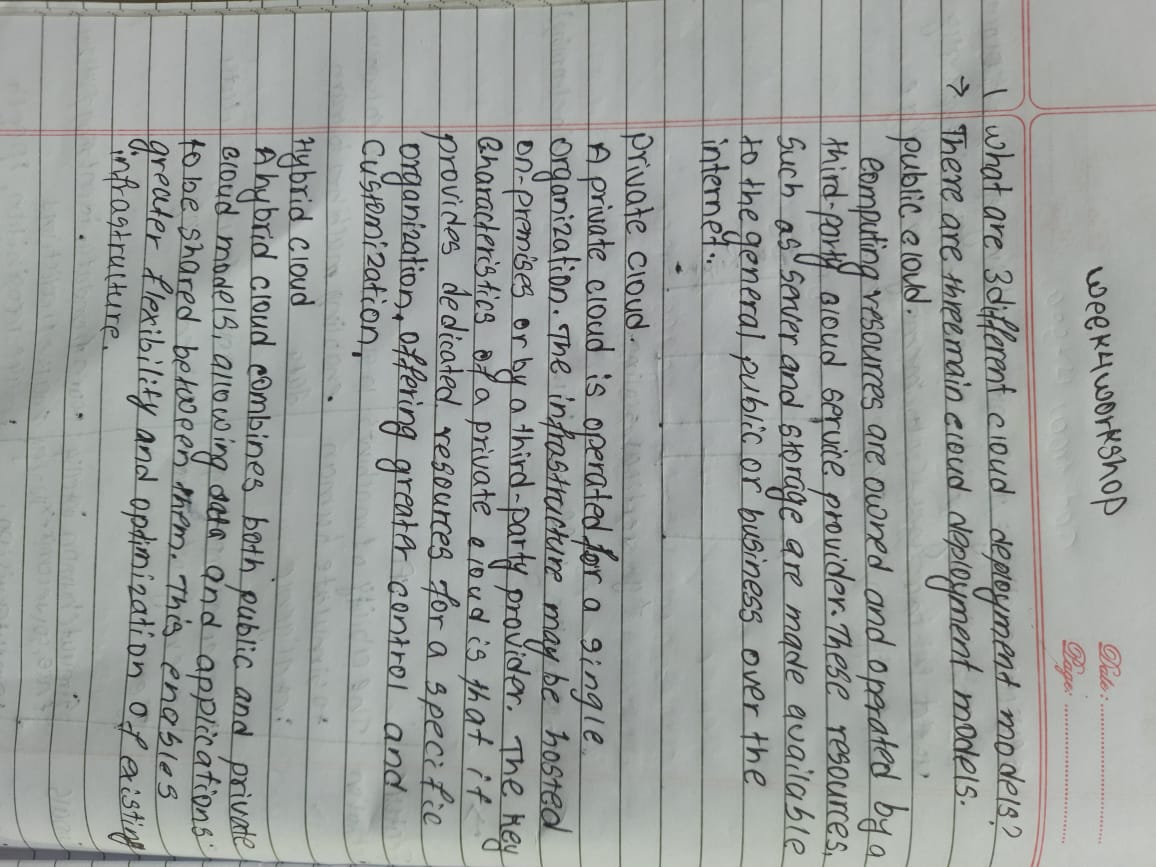 week4workshop
Date:
Page:
1 what are 3different cloud deployment models?
→ There are threemain cloud deployment models.
public cloud.
computing resources are owned and operated by a
third-party cloud service provider. These resources,
Such as server and storage are made available
to the general public or business over the
internet..
private cloud.
A private cloud is operated for a single
organization. The infrastructure may be hosted
on-premises or by a third-party provider. The key
Characteristics of a private cloud is that it
provides dedicated resources for a specific
organization, offering greater control and
customization,
Hybrid cloud
A hybrid cloud combines both public and private
cloud models, allowing data and applications
to be shared between them. This enables
greater flexibility and optimization of existing
infrastructure.